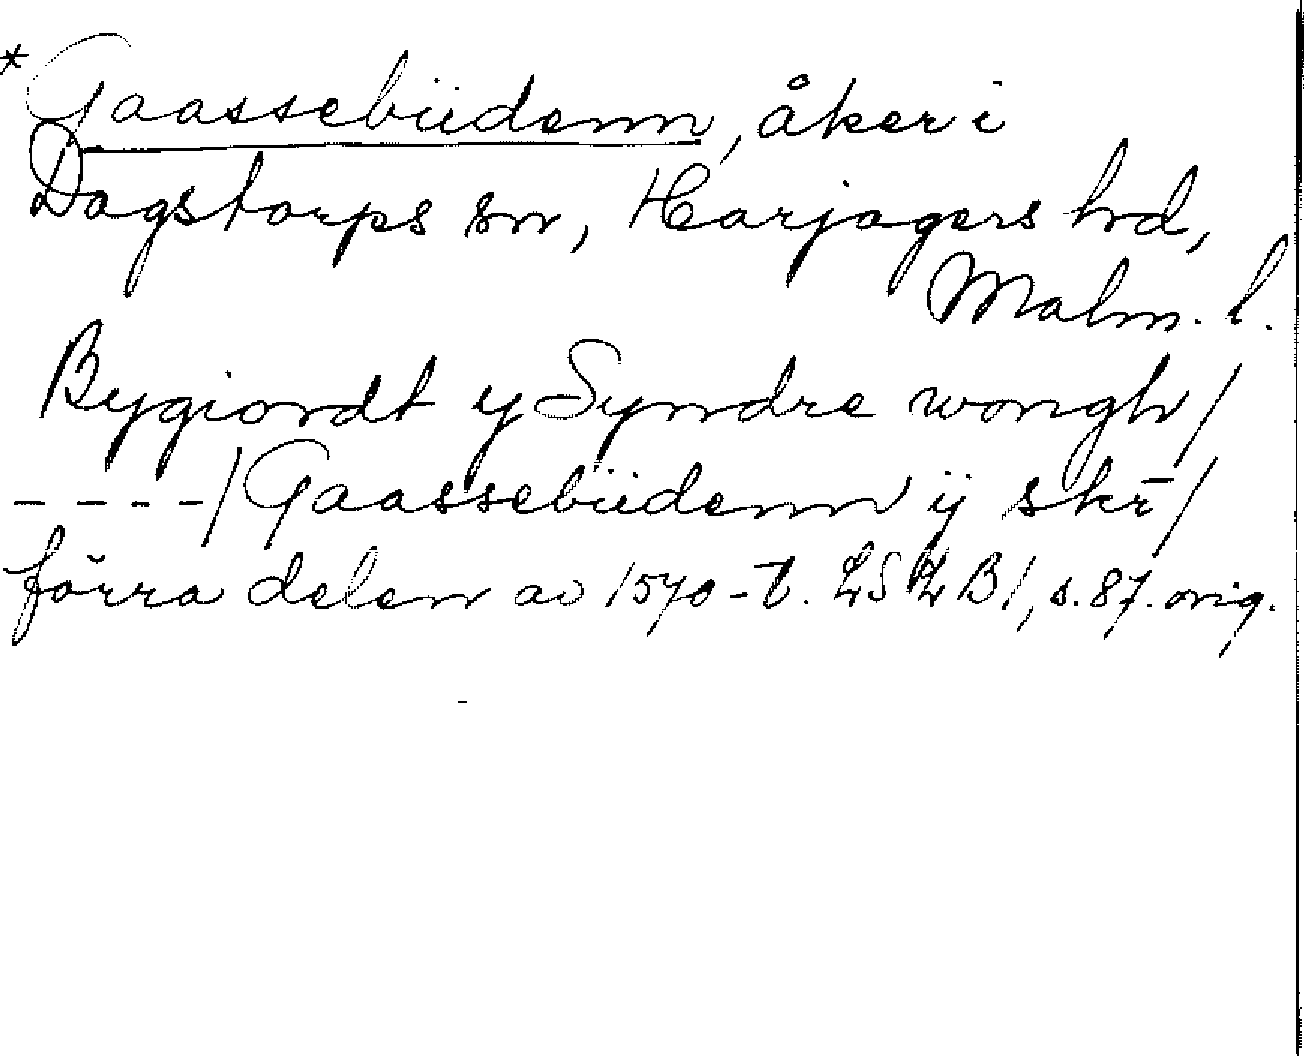 * Gaassebüdenn, åker i
Dagstorps sn, Harjagers hd,
Malm. l.
Bygiordt y Syndre wongh/
----/Gaassebüdenn ij skr̄/
förra delen av 1570-t. LSLB1, s. 87. orig.